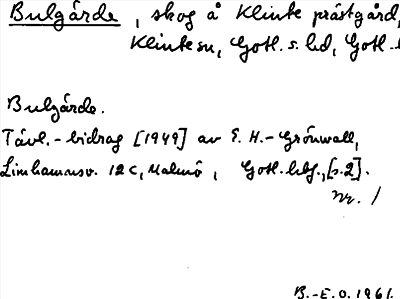 Bulgårde, skog å Klinte prästgård,
Klinte sn, Gotl. s. hd, Gotl.
Bulgårde.
Tävl.-bidrag [1949] av E. H.-Grönwall,
Limhamnsv. 12 C, Malmö, Gotl. [s.2].
nr. 1
B.-E.O. 1961.